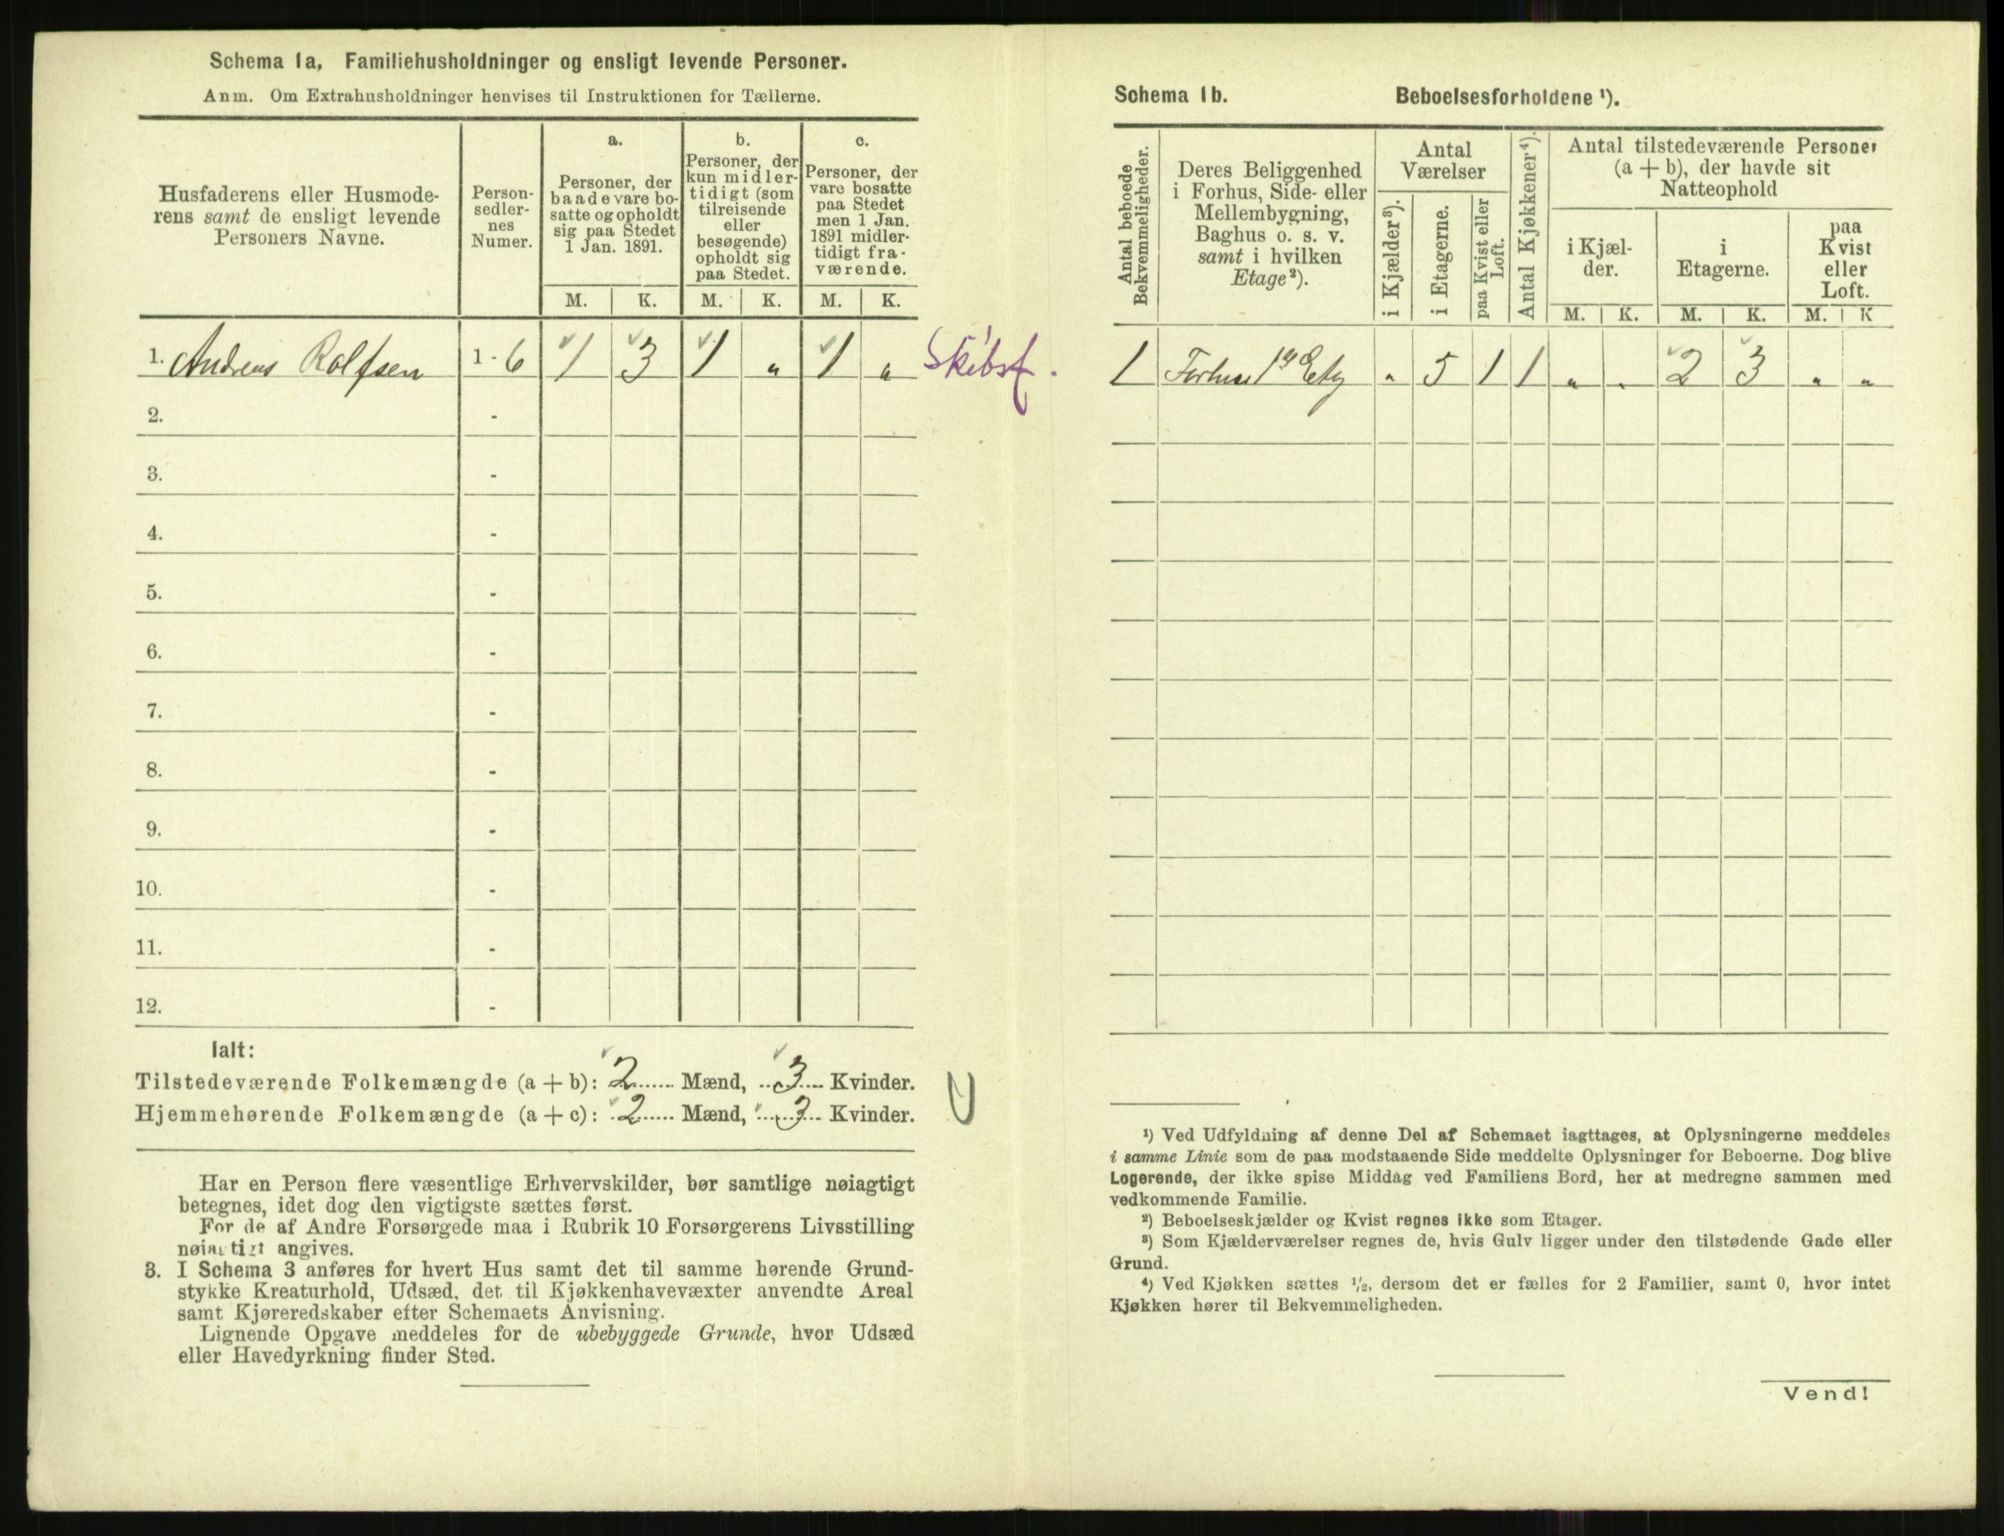 Schema 1a, Familiehusholdninger og ensligt levende Personer.
Anm. Om Extrahusholdninger henvises til Instruktionen for Tællerne.
Husfaderens eller Husmode-
rens samt de ensligt levende
Personers Navne.
Person-
sedler-
nes
Numer.
a.
Personer, der
baade vare bo-
satte og opholdt
sig paa Stedet
1 Jan. 1891.
b.
Personer, der
kun midler-
tidigt (som
tilreisende
eller
besøgende)
opholdt sig
paa Stedet.
c.
Personer, der
vare bosatte
paa Stedet
men 1 Jan.
1891 midler-
tidigt fra-
værende.
M. K. M. K. M. K.
1. Andreas Rolfsen 1 - 6 1 3 1 " 1 " Skibsf.
2. -
3. -
4. -
5. -
6. -
7. -
8. -
9. -
10. -
11. -
12. -
Ialt:
Tilstedeværende Folkemængde (a + b): 2 Mænd, 3 Kvinder.
Hjemmehørende Folkemængde (a + c): 2 Mænd, 3 Kvinder.
Har en Person flere væsentlige Erhvervskilder, bør samtlige nøiagtigt
betegnes, idet dog den vigtigste sættes først.
For de af Andre Forsørgede maa i Rubrik 10 Forsørgerens Livsstilling
nøiagtigt angives.
3. I Schema 3 anføres for hvert Hus samt det til samme hørende Grund-
stykke Kreaturhold, Udsæd, det til Kjøkkenhavevæxter anvendte Areal
samt Kjøreredskaber efter Schemaets Anvisning.
Lignende Opgave meddeles for de ubebyggede Grunde, hvor Udsæd
eller Havedyrkning finder Sted.
Schema 1b. Beboelsesforholdene ¹).
Antal beboede
Bekvemmeligheder.
Deres Beliggenhed
i Forhus, Side- eller
Mellembygning,
Baghus o. s. v.
samt i hvilken
Etage²).
Antal
Værelser
i Kjælder³).
i Etagerne.
paa Kvist eller
Loft.
Antal Kjøkkener⁴).
Antal tilstedeværende Personer
(a + b), der havde sit
Natteophold
i Kjæl-
der.
i
Etagerne.
paa
Kvist
eller
Loft.
M. K. M. K. M. K
1 Forhus 1ste Etg " 5 1 1 " " 2 3 " "
¹) Ved Udfyldning af denne Del af Schemaet iagttages, at Oplysningerne meddeles
i samme Linie som de paa modstaaende Side meddelte Oplysninger for Beboerne. Dog blive
Logerende, der ikke spise Middag ved Familiens Bord, her at medregne sammen med
vedkommende Familie.
²) Beboelseskjælder og Kvist regnes ikke som Etager.
³) Som Kjælderværelser regnes de, hvis Gulv ligger under den tilstødende Gade eller
Grund.
⁴) Ved Kjøkken sættes ½, dersom det er fælles for 2 Familier, samt 0, hvor intet
Kjøkken hører til Bekvemmeligheden.
Vend!